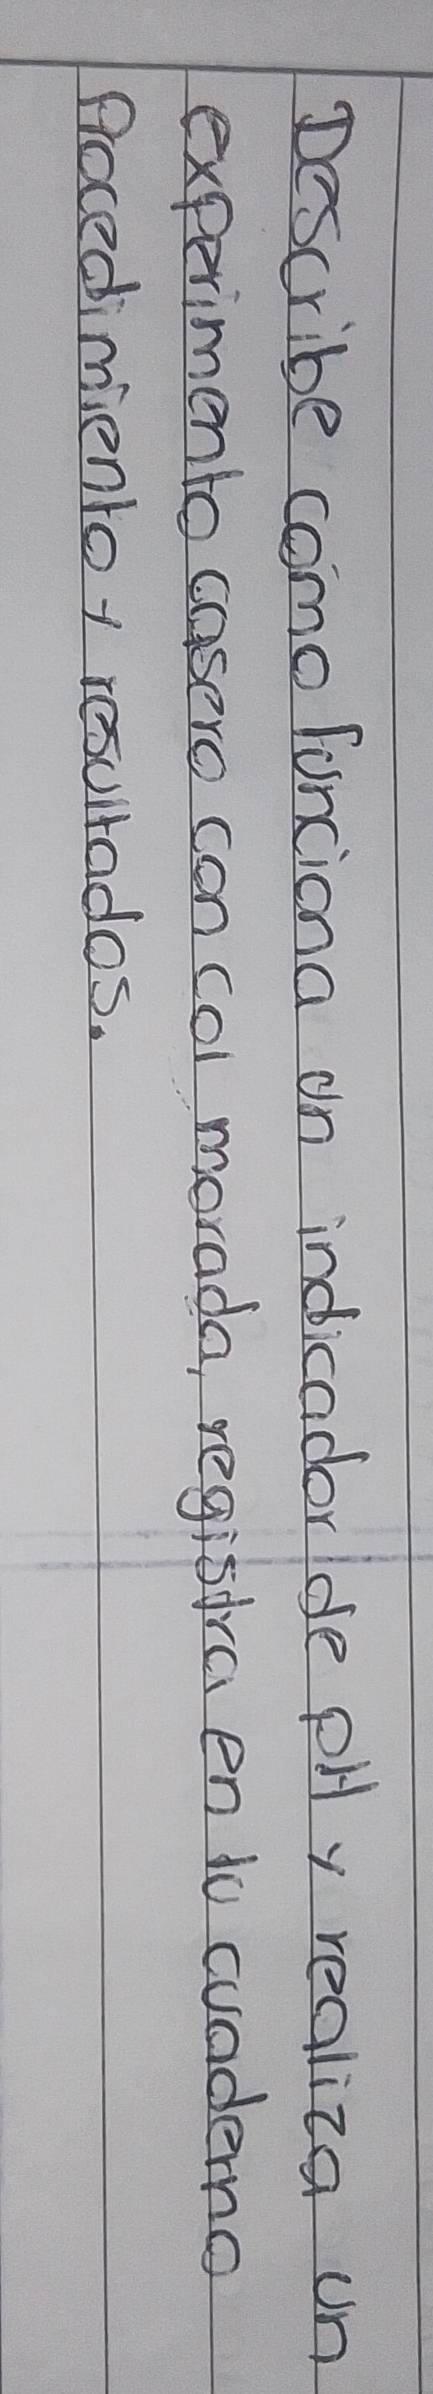 Describe cómo funciona un indicador de pH y realiza un
experimento casero con col morada, registra en tu cuaderno
Procedimiento y resultados.